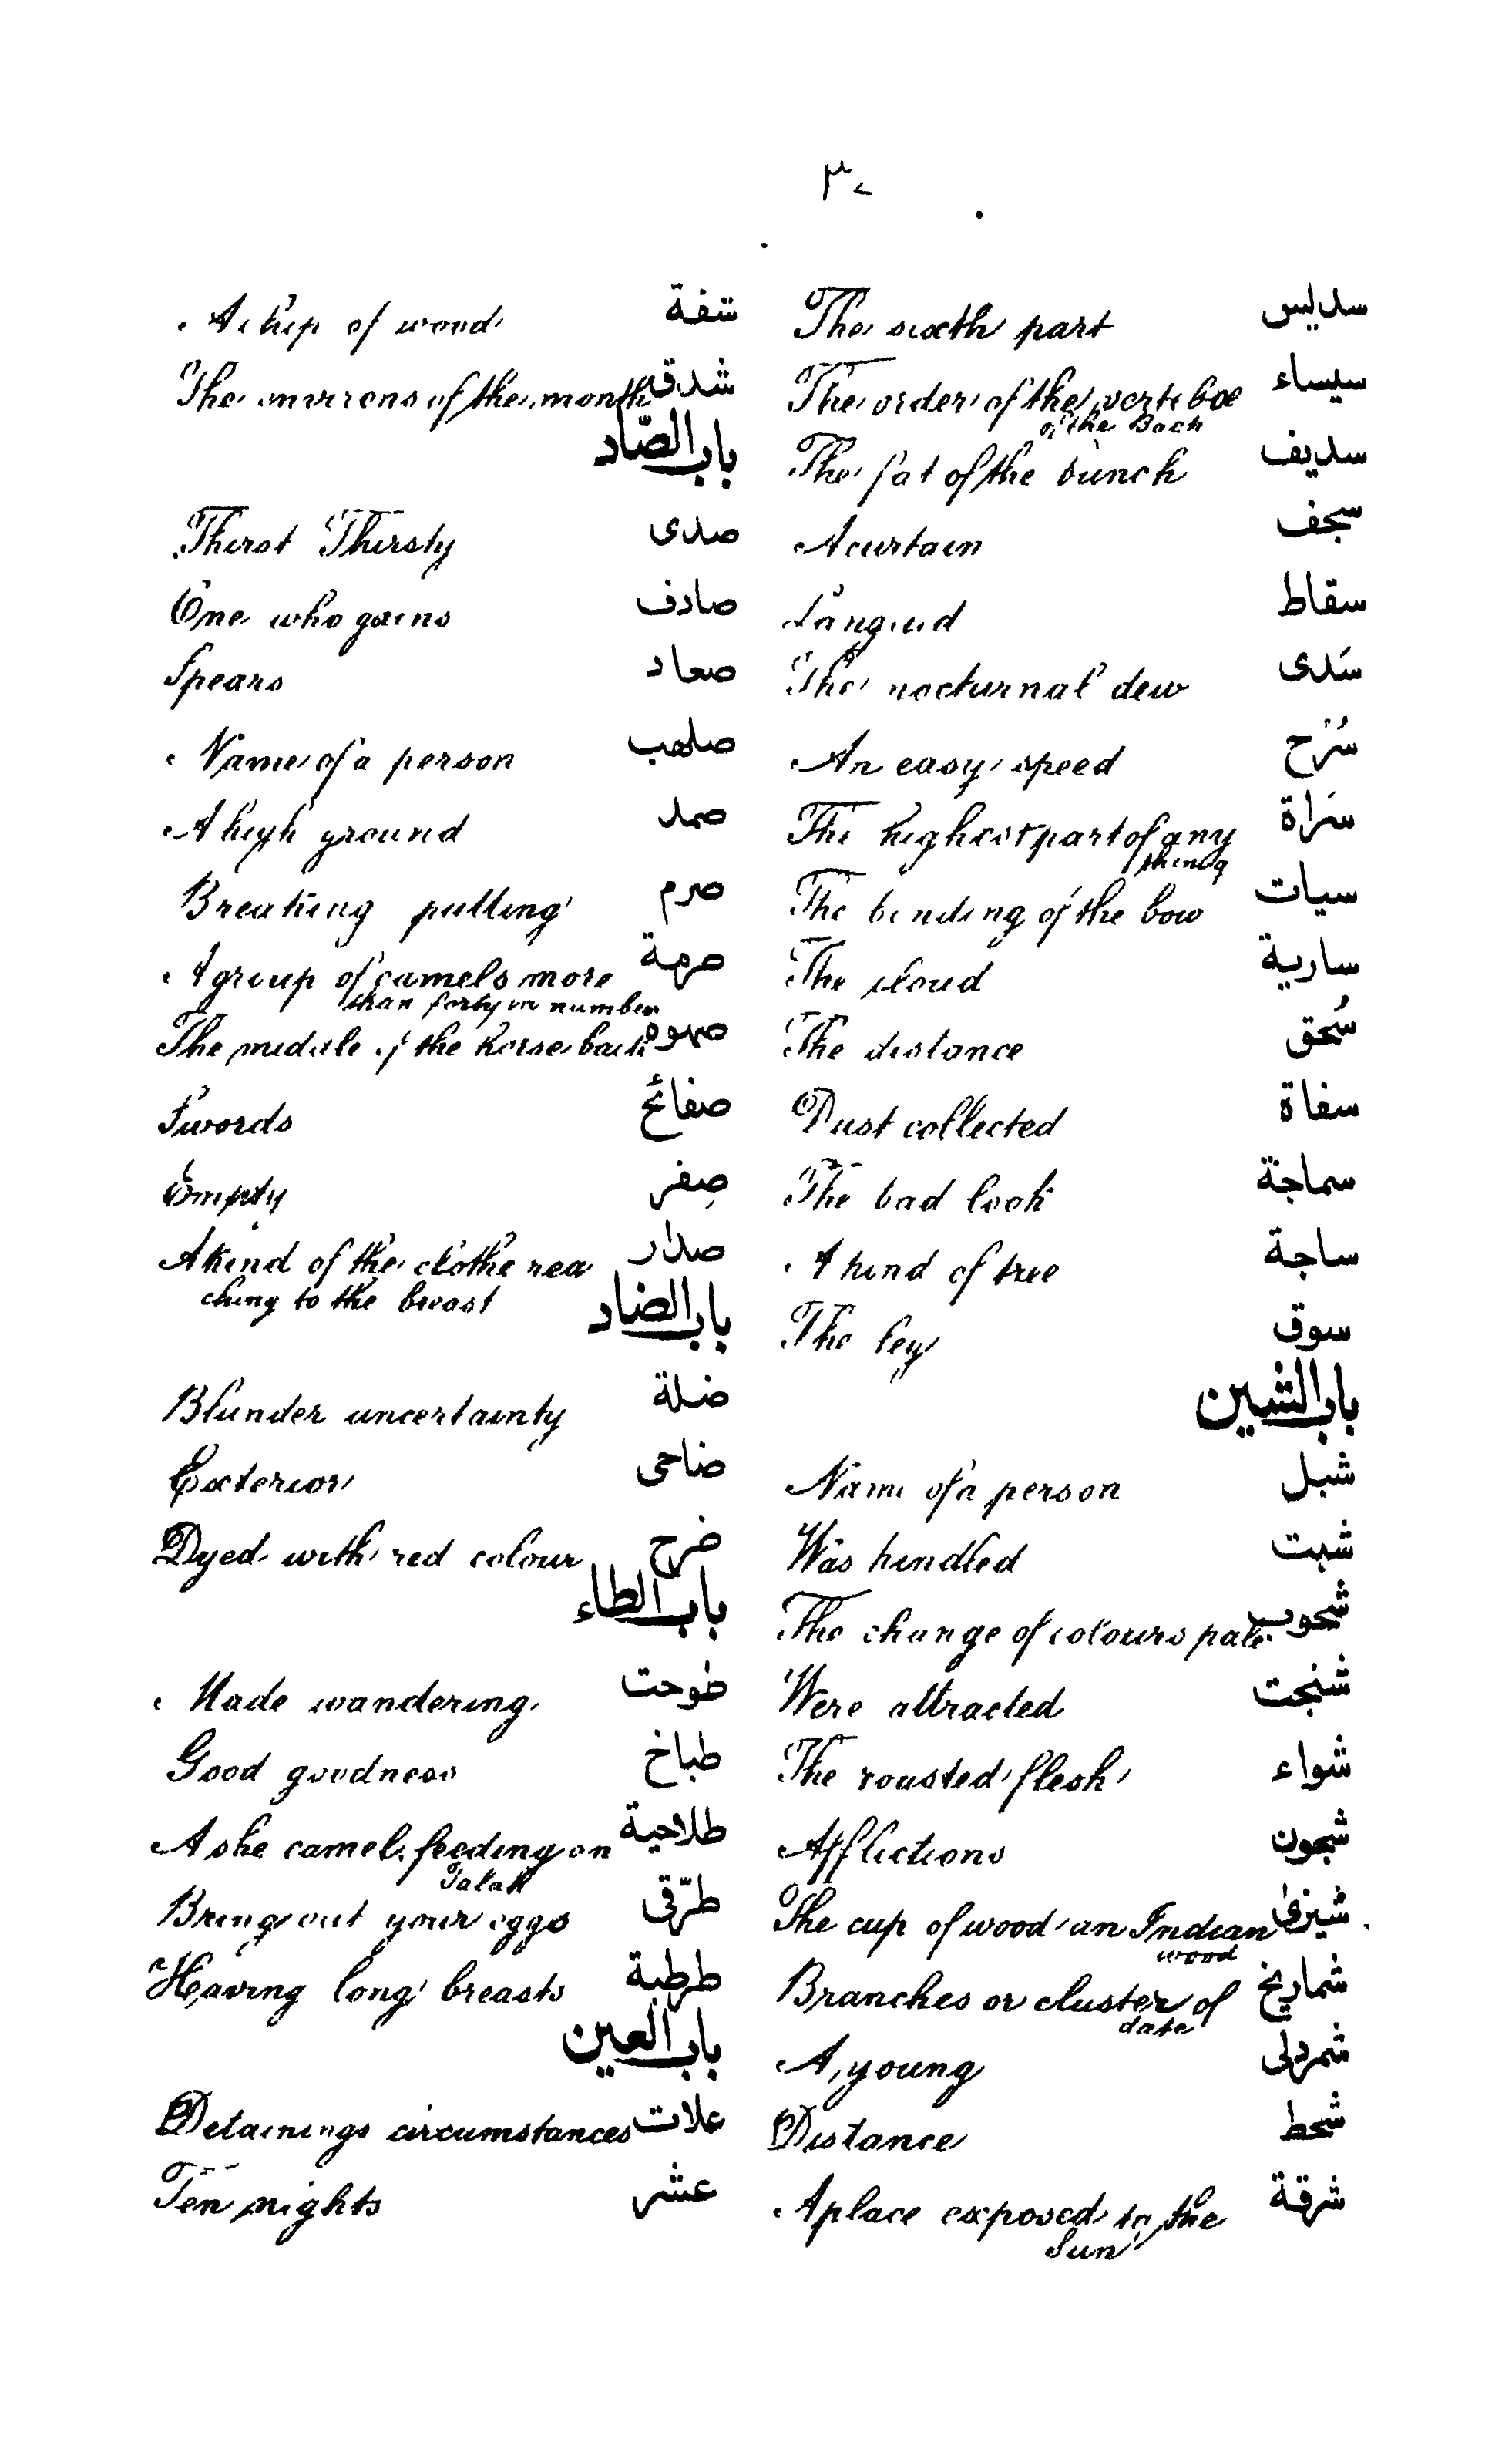 ٣٠
سديس The sixth part
سيساء The order of the vertiboe
of the Back
سديف The fat of the bunch
سجف A curtain
سقاط Languid
سَدى The nocturnal dew
سُرُح An easy speed
سَراة The highest part of any
thing
سيات The binding of the bow
سارية The cloud
سُحق The distance
سفاة Dust collected
سماجة The bad look
ساجة A kind of tree
سوق The leg
باب الشين
شبل Name of a person
شبت Was kindled
شحوب The change of colours pale
شنجت Were attracted
شواء The roasted flesh
شجون Afflictions
شيزى The cup of wood an Indian
wood
شماريخ Branches or cluster of
date
شمردلى A young
شحط Distance
شرقة A place exposed to the
Sun
شفة A chip of wood
شدق The environs of the mouth
باب الصّاد
صدى Thirst Thirsty
صادف One who gains
صعاد Spears
صلهب Name of a person
صمد A high ground
صرم Breaking pulling
صرمة A group of camels more
than forty in number
صهوه The middle of the horse back
صفائح Swords
صِفر Empty
صدار A kind of the clothe rea
ching to the breast
باب الضاد
ضلة Blunder uncertainty
ضاحى Exterior
ضرح Dyed with red colour
باب الطاء
طوحت Made wandering
طباخ Good goodness
طلاحية A she camel feeding on
Talah
طرّقى Bring out your eggs
طرطبة Heaving long breasts
باب العين
علات Detainings circumstances
عشر Ten nights